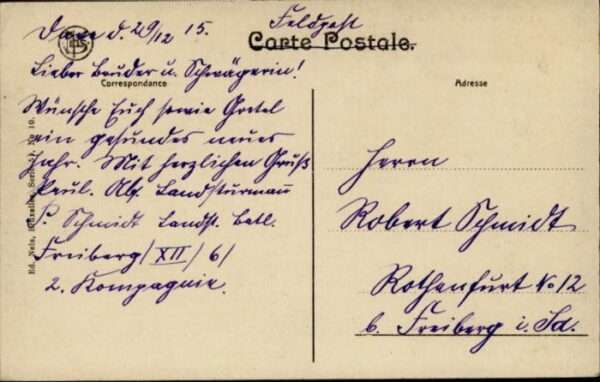 d. 29/12 15. Feldpost
Carte Postale.
Lieber Bruder u. Schwägerin!
Correspondance
Adresse
Wünsche Euch sowie Gretel
ein gesundes neues
Jahr. Mit herzlichen Gruß
Paul. Abs. Landsturmann
P. Schmidt Landst. Batl.
Freiberg/XII/6/
2. Kompagnie.
Herrn
Robert Schmidt
Rothenfurt No 12
b. Freiberg i. Sa.
Ed. Nels, Bruxelles, Serie No 10.